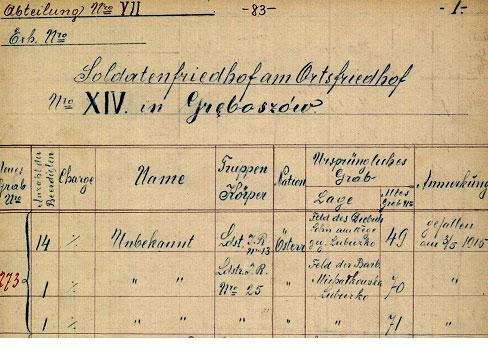 Abteilung Nro VII -83- -1-
Erh. Nro
Soldatenfriedhof am Ortsfriedhof
Nro XIV. in Gręboszów.
Neues Grab Nro Anzahl der Beerdigten Charge Name Truppen Körper Nation Ursprüngliches Grab Anmerkung
Lage Altes Grab Nro
14 ⁒ Unbekannt Ldst. I. R. Nro 13 Österr. Feld des 49 gefallen am 3/5 1915
273 1 ⁒ " " Ldstr. R. Nro 25 " Feld der Barb. Michałkowska 70 "
1 ⁒ " " " " " 71 "